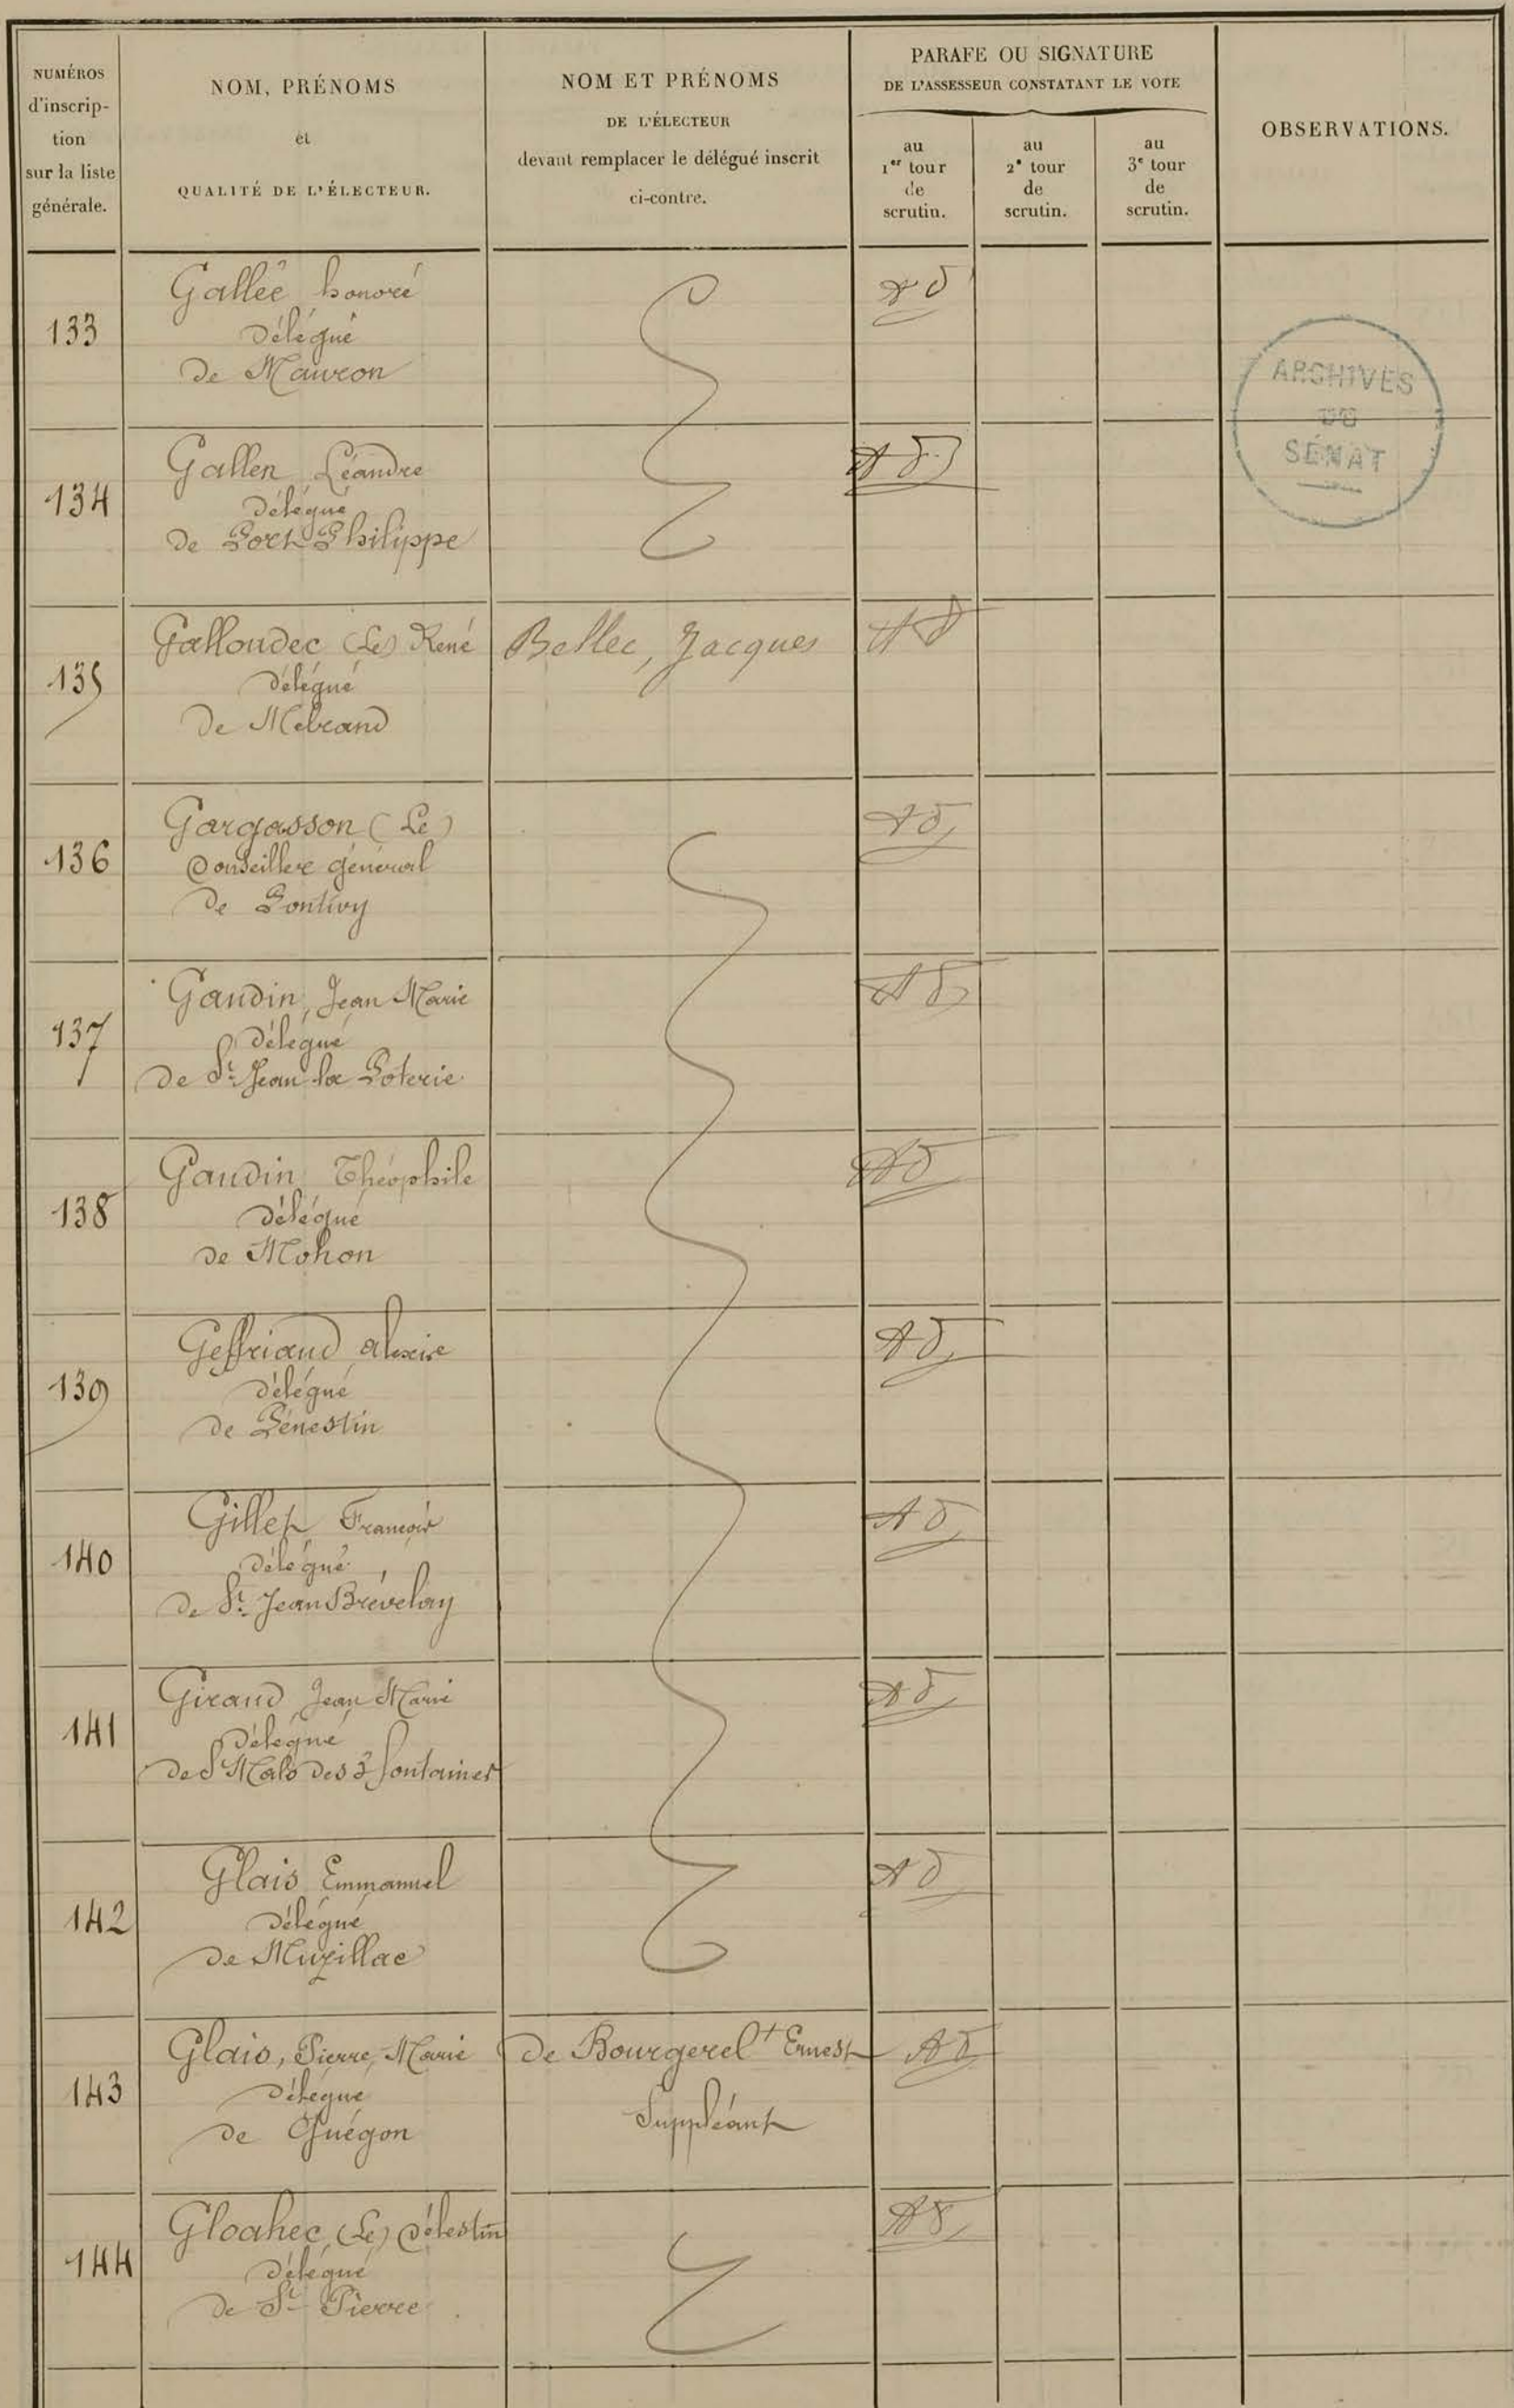 NUMÉROS
d'inscrip-
tion
sur la liste
générale.
NOM, PRÉNOMS
et
QUALITÉ DE L'ÉLECTEUR.
NOM ET PRÉNOMS
DE L'ÉLECTEUR
devant remplacer le délégué inscrit
ci-contre.
PARAFE OU SIGNATURE
DE L'ASSESSEUR CONSTATANT LE VOTE
au
1er tour
de
scrutin.
au
2e tour
de
scrutin.
au
3e tour
de
scrutin.
OBSERVATIONS.
133
Gallée honoré
Délégué
De Mauron
ARCHIVES
DU
SÉNAT
134
Gallen, Léandre
Délégué
De Port-Philippe
135
Galloudec (Le) René
Délégué
De Melrand
Bellec, Jacques
136
Gargasson (Le)
Conseiller général
De Pontivy
137
Gaudin, Jean Marie
Délégué
De St Jean la Poterie
138
Gaudin Théophile
Délégué
de Mohon
139
Geffriaud
délégué
de Pénestin
140
Gillet, François
Délégué
de St Jean Brévelay
141
Giraud, Jean Marie
Délégué
De St Malo des 3 fontaines
142
Glais Emmanuel
Délégué
de Muzillac
143
Glais, Pierre, Marie
Délégué
de Guégon
de Bourgerel Ernest
Suppléant
144
Gloahec, (Le) Célestin
Délégué
de St Pierre